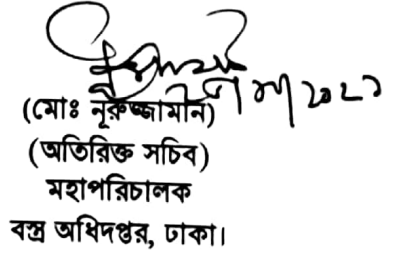 (মোঃ নূরুজ্জামান)
(অতিরিক্ত সচিব)
মহাপরিচালক
বস্ত্র অধিদপ্তর, ঢাকা।